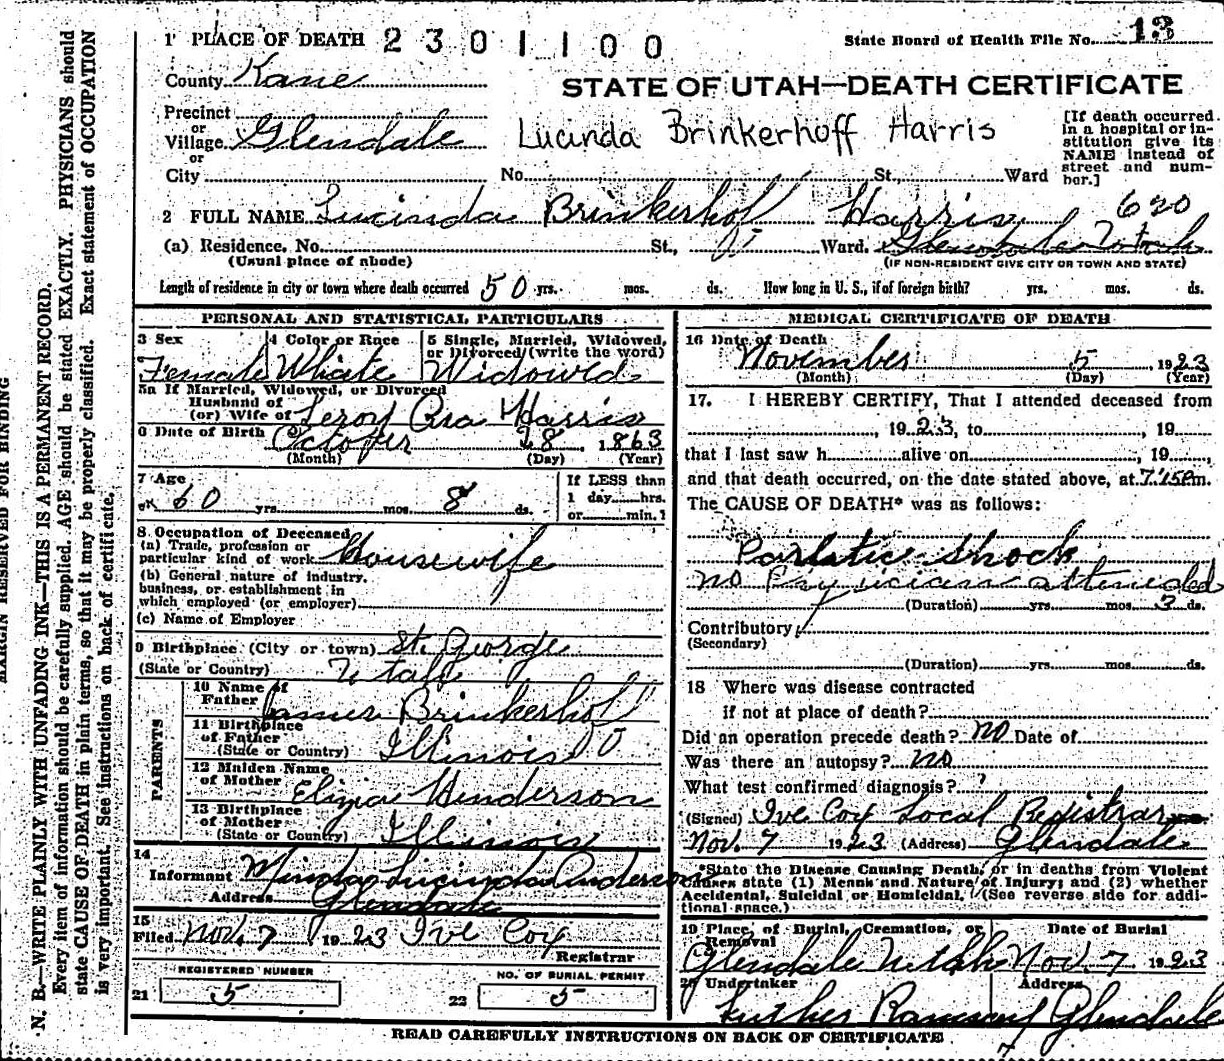 1 PLACE OF DEATH 2301100
State Board of Health File No. 13
County Kane
STATE OF UTAH—DEATH CERTIFICATE
Precinct
or
Village Glendale
Lucinda Brinkerhoff Harris
[If death occurred in a hospital or institution give its NAME instead of street and number.]
or
City No. St., Ward
2 FULL NAME Lucinda Brinkerhof Harris 620
(a) Residence. No. St., Ward. Glendale Utah
(Usual place of abode) (IF NON-RESIDENT GIVE CITY OR TOWN AND STATE)
Length of residence in city or town where death occurred 50 yrs. mos. ds. How long in U. S., if of foreign birth? yrs. mos. ds.
PERSONAL AND STATISTICAL PARTICULARS
3 Sex 4 Color or Race 5 Single, Married, Widowed,
or Divorced (write the word)
Female White Widowed
5a If Married, Widowed, or Divorced
Husband of
(or) Wife of Leroy Harris
6 Date of Birth October 28 1863
(Month) (Day) (Year)
7 Age If LESS than
60 yrs. mos. 8 ds. 1 day hrs.
or min.?
8 Occupation of Deceased
(a) Trade, profession or
particular kind of work Housewife
(b) General nature of industry,
business, or establishment in
which employed (or employer)
(c) Name of Employer
9 Birthplace (City or town) St. George
(State or Country) Utah
PARENTS
10 Name of
Father James Brinkerhof
11 Birthplace
of Father
(State or Country) Illinois
12 Maiden Name
of Mother Eliza Henderson
13 Birthplace
of Mother
(State or Country) Illinois
14
Informant Minda Lucinda Anderson
Address Glendale
15
Filed Nov. 7 1923 Ive Coy
Registrar
REGISTERED NUMBER NO. OF BURIAL PERMIT
21 5 22 5
MEDICAL CERTIFICATE OF DEATH
16 Date of Death
November 5, 1923
(Month) (Day) (Year)
17. I HEREBY CERTIFY, That I attended deceased from
, 1923, to , 19
that I last saw h alive on , 19 ,
and that death occurred, on the date stated above, at 7:15 Pm.
The CAUSE OF DEATH* was as follows:
Parlatic Shock
no Psycician attended
(Duration) yrs. mos. 3 ds.
Contributory
(Secondary)
(Duration) yrs. mos. ds.
18 Where was disease contracted
if not at place of death?
Did an operation precede death? no Date of
Was there an autopsy? no
What test confirmed diagnosis? ?
(Signed) Ive Coy Local Registrar
Nov. 7 1923 (Address) Glendale
*State the Disease Causing Death, or in deaths from Violent
Causes state (1) Means and Nature of Injury; and (2) whether
Accidental, Suicidal or Homicidal. (See reverse side for addi-
tional space.)
19 Place of Burial, Cremation, or Date of Burial
Removal
Glendale Utah Nov. 7 1923
20 Undertaker Address
Luther Ramsay Glendale
READ CAREFULLY INSTRUCTIONS ON BACK OF CERTIFICATE
MARGIN RESERVED FOR BINDING
N. B.—WRITE PLAINLY WITH UNFADING INK—THIS IS A PERMANENT RECORD.
Every item of information should be carefully supplied. AGE should be stated EXACTLY. PHYSICIANS should
state CAUSE OF DEATH in plain terms, so that it may be properly classified. Exact statement of OCCUPATION
is very important. See instructions on back of certificate.